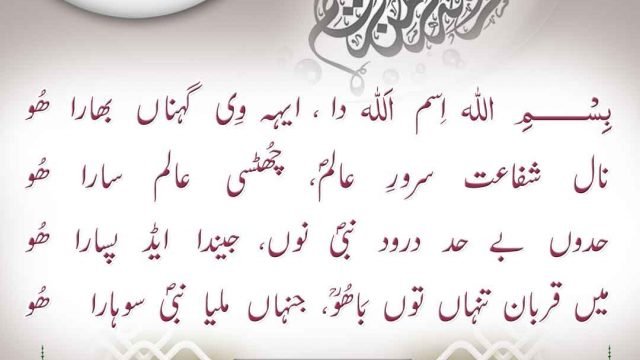 بِسْمِ اللہ اِسم اَللہ دا ، ایہہ وِی گہناں بھارا ھُو
نال شفاعت سرورِ عالمؐ، چُھٹسی عالم سارا ھُو
حدوں بے حد درود نبیؐ نوں، جیندا ایڈ پسارا ھُو
میں قربان تنہاں توں باھُوؒ، جنہاں ملیا نبیؐ سوہارا ھُو